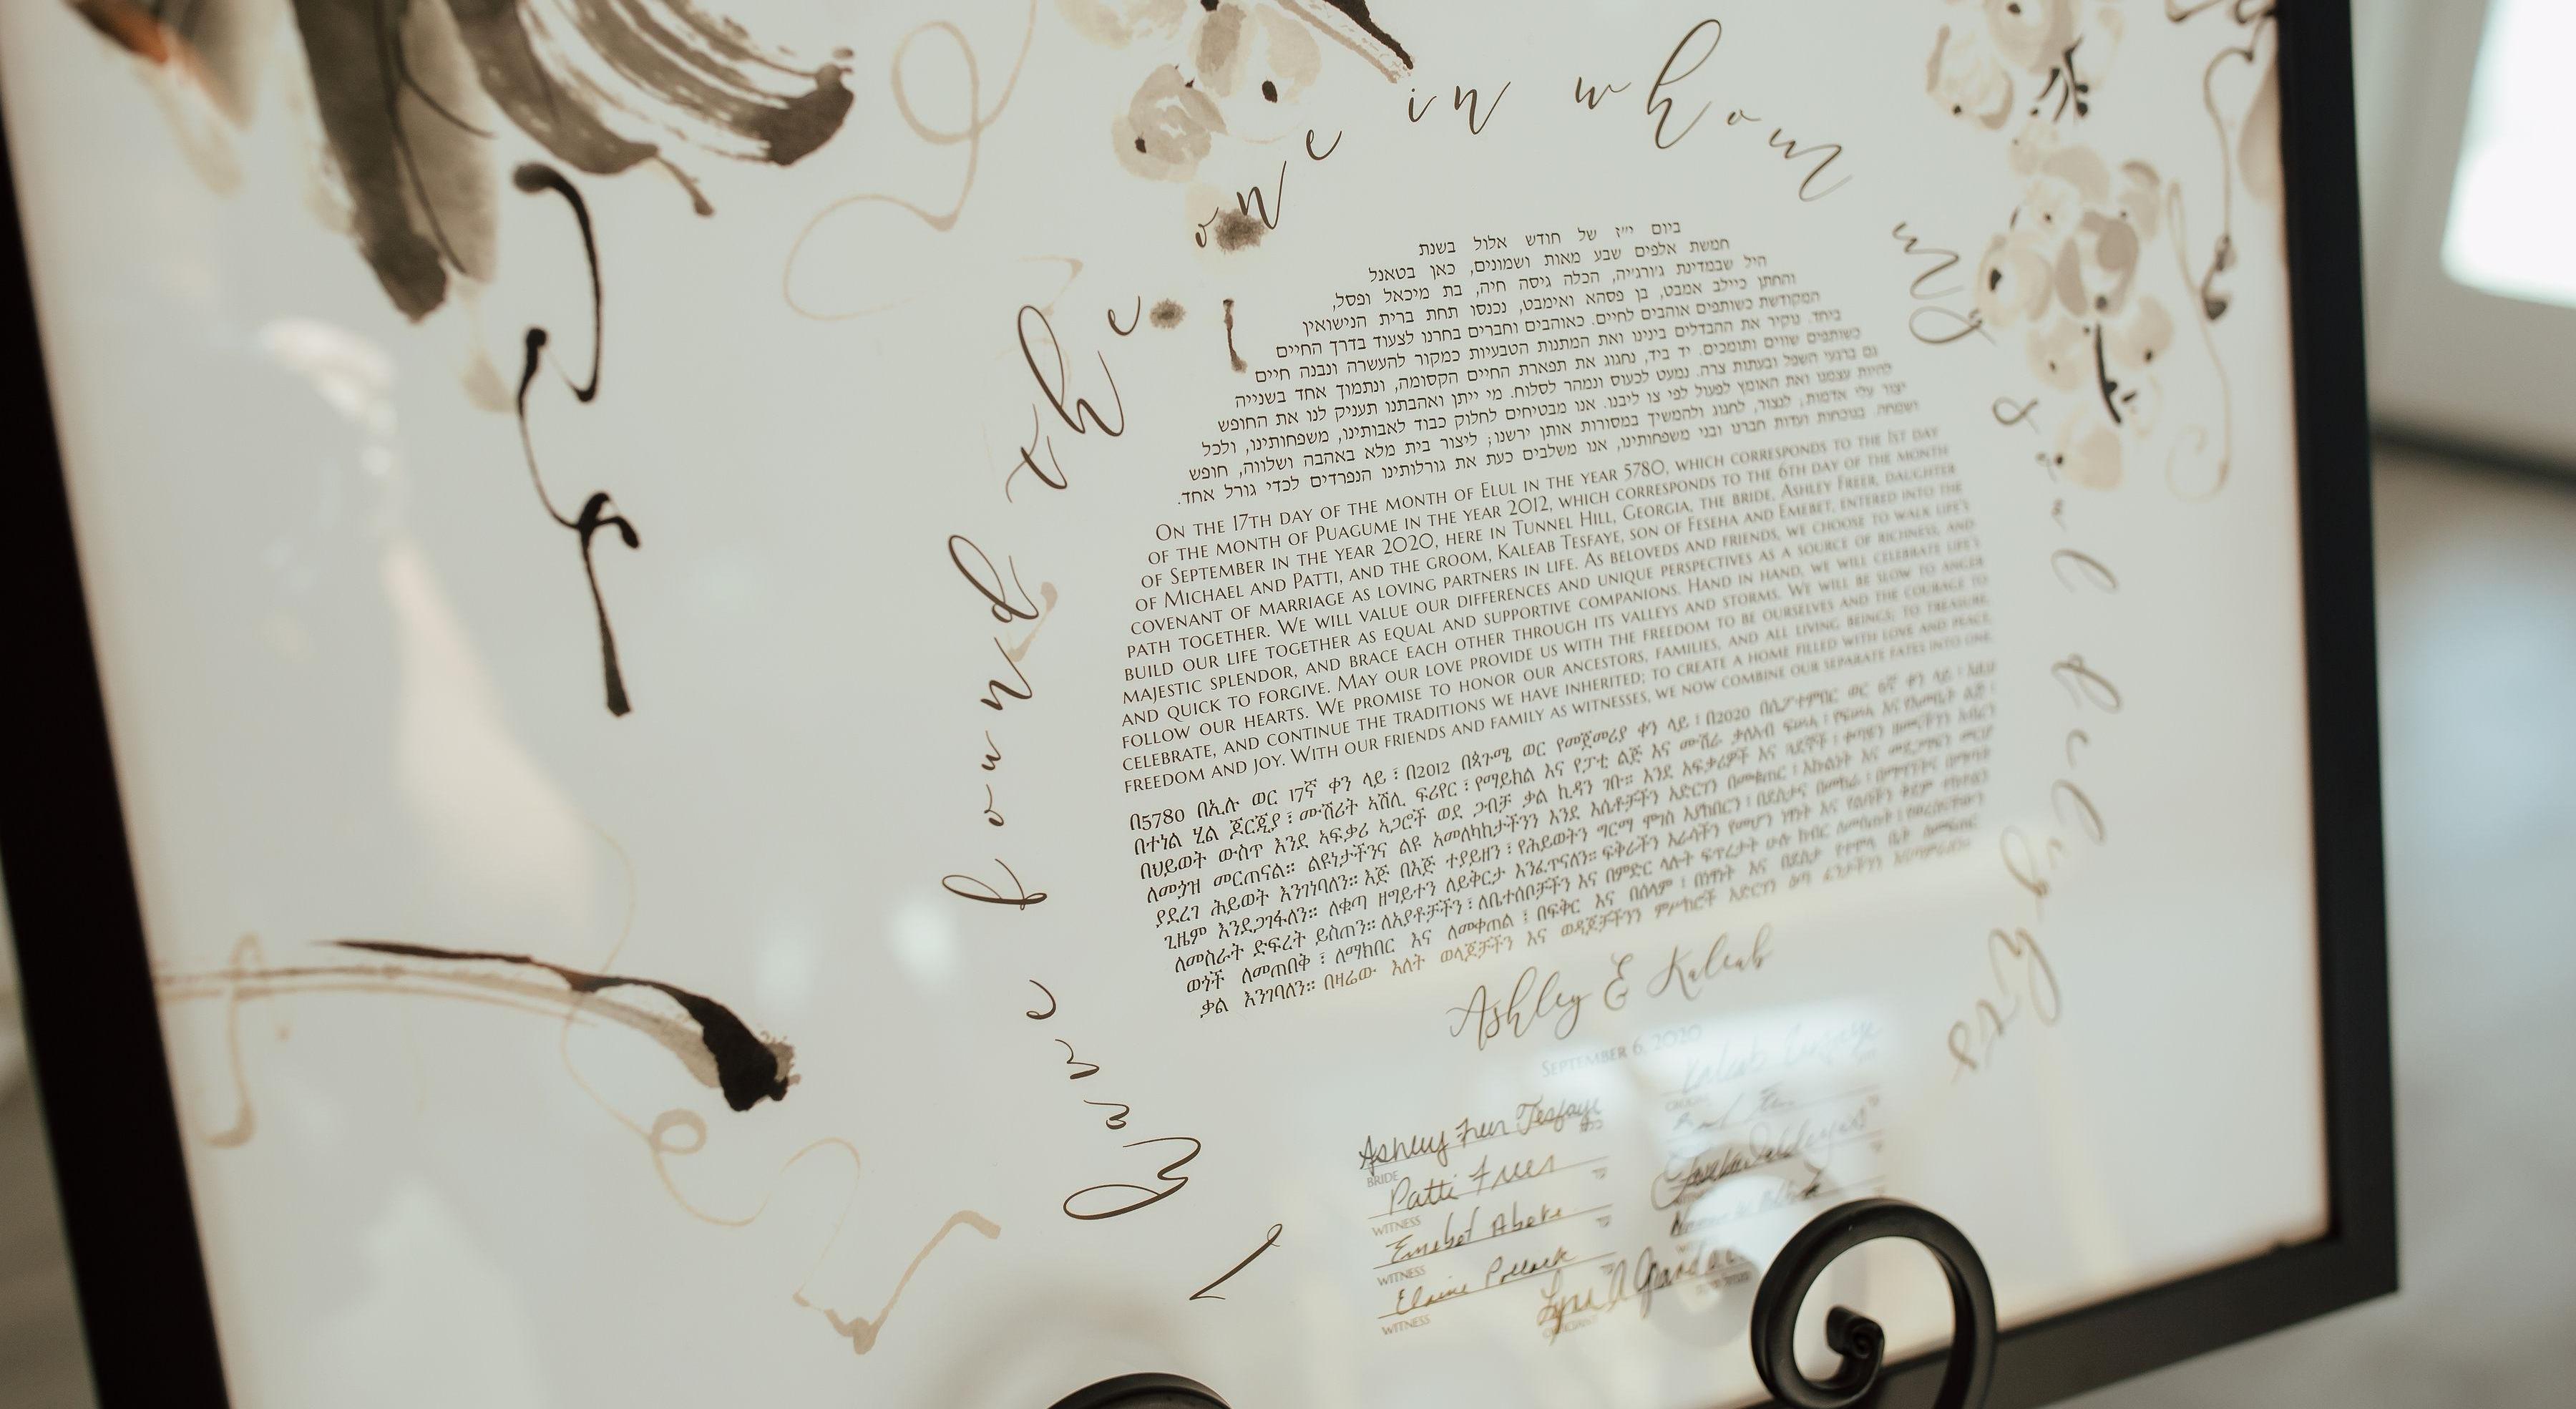 I have found the one in whom my soul delights
ביום י״ז של חודש אלול בשנת
חמשת אלפים שבע מאות ושמונים, כאן בטאנל
היל שבמדינת ג׳ורג׳יה, הכלה גיסה חיה, בת מיכאל ופסל,
והחתן כיילב אמבט, בן פסהא ואימבט, נכנסו תחת ברית הנישואין
המקודשת כשותפים אוהבים לחיים. כאוהבים וחברים בחרנו לצעוד בדרך החיים
ביחד. נוקיר את ההבדלים בינינו ואת המתנות הטבעיות כמקור להעשרה ונבנה חיים
כשותפים שווים ותומכים. יד ביד, נחגוג את תפארת החיים הקסומה, ונתמוך אחד בשנייה
גם ברגעי השפל ובעתות צרה. נמעט לכעוס ונמהר לסלוח. מי ייתן ואהבתנו תעניק לנו את החופש
להיות עצמנו ואת האומץ לפעול לפי צו ליבנו. אנו מבטיחים לחלוק כבוד לאבותינו, משפחותינו, ולכל
יצור עלי אדמות; לנצור, לחגוג ולהמשיך במסורות אותן ירשנו; ליצור בית מלא באהבה ושלווה, חופש
ושמחה. בנוכחות ועדות חברנו ובני משפחותינו, אנו משלבים כעת את גורלותינו הנפרדים לכדי גורל אחד.
On the 17th day of the month of Elul in the year 5780, which corresponds to the 1st day
of the month of Puagume in the year 2012, which corresponds to the 6th day of the month
of September in the year 2020, here in Tunnel Hill, Georgia, the bride, Ashley Freer, daughter
of Michael and Patti, and the groom, Kaleab Tesfaye, son of Feseha and Emebet, entered into the
covenant of marriage as loving partners in life. As beloveds and friends, we choose to walk life's
path together. We will value our differences and unique perspectives as a source of richness, and
build our life together as equal and supportive companions. Hand in hand, we will celebrate life's
majestic splendor, and brace each other through its valleys and storms. We will be slow to anger
and quick to forgive. May our love provide us with the freedom to be ourselves and the courage to
follow our hearts. We promise to honor our ancestors, families, and all living beings; to treasure,
celebrate, and continue the traditions we have inherited; to create a home filled with love and peace,
freedom and joy. With our friends and family as witnesses, we now combine our separate fates into one.
በ5780 በኢሉ ወር 17ኛ ቀን ላይ ፣ በ2012 በጳጉሜ ወር የመጀመሪያ ቀን ላይ ፣ በ2020 በሴፕተምበር ወር 6ኛ ቀን ላይ ፣
በተነል ሂል ጆርጂያ ፣ ሙሽሪት አሽሊ ፍሪየር ፣ የማይክል እና የፓቲ ልጅ እና ሙሽራ ቃለአብ
በህይወት ውስጥ እንደ አፍቃሪ አጋሮች ወደ ጋብቻ ቃል ኪዳን ገቡ። እንደ አፍቃሪዎች እና ጓደኞች ፣
ለመጓዝ መርጠናል። ልዩነታችንና ልዩ አመለካከታችንን እንደ እሴቶቻችን አድርገን
ያደረገ ሕይወት እንገነባለን። እጅ በእጅ ተያይዘን ፣ የሕይወትን ግርማ ሞገስ እያከበርን ፣
ጊዜም እንደጋገፋለን። ለቁጣ ዘግይተን ለይቅርታ እንፈጥናለን። ፍቅራችን እራሳችን የመሆን ነፃነት እና
ለመስራት ድፍረት ይስጠን። ለአያቶቻችን ፣ ለቤተሰቦቻችን እና በምድር ላሉት ፍጥረታት ሁሉ ክብር
ወጎች ለመጠበቅ ፣ ለማክበር እና ለመቀጠል ፣ በፍቅር እና በሰላም ፣ በነፃነት እና በደስታ
ቃል እንገባለን። በዛሬው እለት ወላጆቻችን እና ወዳጆቻችንን ምሥክሮች አድርገን
Ashley & Kaleab
September 6, 2020
Ashley Freer Tesfaye
BRIDE
Patti Freer
WITNESS
Emebet Abebe
WITNESS
Elaine Pollack
WITNESS
Kaleab Tesfaye
GROOM
Lynn
OFFICIANT